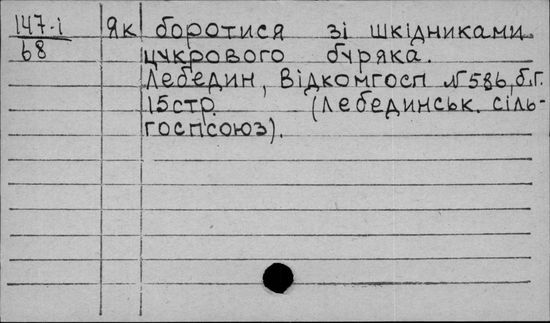 147-і Як боротися зі шкідниками
68 цукрового буряка.
Лебедин, Відкомгосп №586, б.г.
15стр. (Лебединськ. сіль-
госпсоюз).